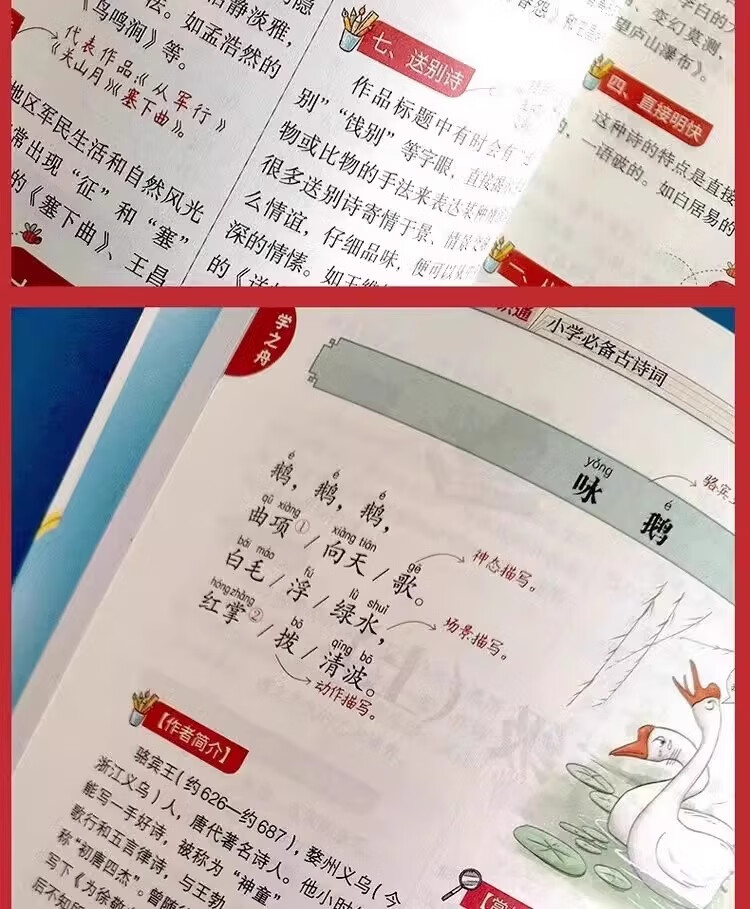 鸟鸣涧》等。
法。如孟浩然的
代表作品：《从军行》
《关山月》《塞下曲》。
地区军民生活和自然风光
常出现“征”和“塞”
的《塞下曲》、王昌
七、送别诗
作品标题中有时会有
别”“饯别”等字眼，直接
物或比物的手法来表达某种
很多送别诗寄情于景、情
么情谊，仔细品味，便可以
深的情愫。如王维
望庐山瀑布》。
变幻莫测，
四、直接明快
这种诗的特点是直接
一语破的。如白居易的
学之舟
小学必备古诗词
yǒng é
咏鹅
骆宾
é é é
鹅，鹅，鹅，
qū xiàng xiàng tiān gē
曲项①/向天/歌。
神态描写。
bái máo fú lǜ shuǐ
白毛/浮/绿水，
场景描写。
hóng zhǎng bō qīng bō
红掌②/拨/清波。
动作描写。
【作者简介】
骆宾王（约626—约687），婺州义乌（今
浙江义乌）人，唐代著名诗人。他小时
能写一手好诗，被称为“神童”
歌行和五言律诗，与王勃
称“初唐四杰”。曾随
写下《为徐敬
后不知所